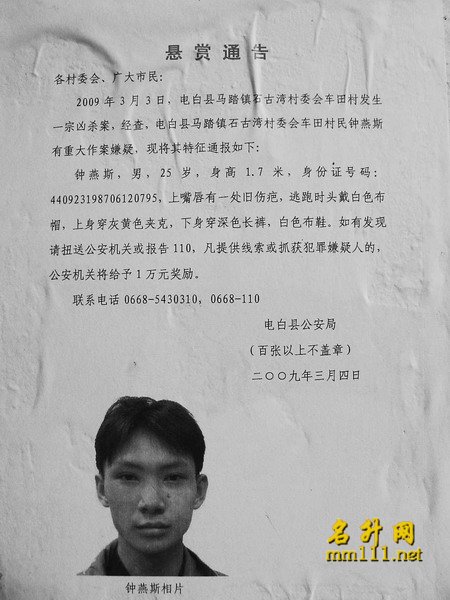 悬赏通告
各村委会、广大市民：
2009年3月3日，电白县马踏镇石古湾村委会车田村发生
一宗凶杀案，经查，电白县马踏镇石古湾村委会车田村民钟燕斯
有重大作案嫌疑，现将其特征通报如下：
钟燕斯，男，25岁，身高1.7米，身份证号码：
440923198706120795，上嘴唇有一处旧伤疤，逃跑时头戴白色布
帽，上身穿灰黄色夹克，下身穿深色长裤，白色布鞋。如有发现
请扭送公安机关或报告110，凡提供线索或抓获犯罪嫌疑人的，
公安机关将给予1万元奖励。
联系电话0668-5430310，0668-110
电白县公安局
（百张以上不盖章）
二〇〇九年三月四日
名升网
mm111.net
钟燕斯相片